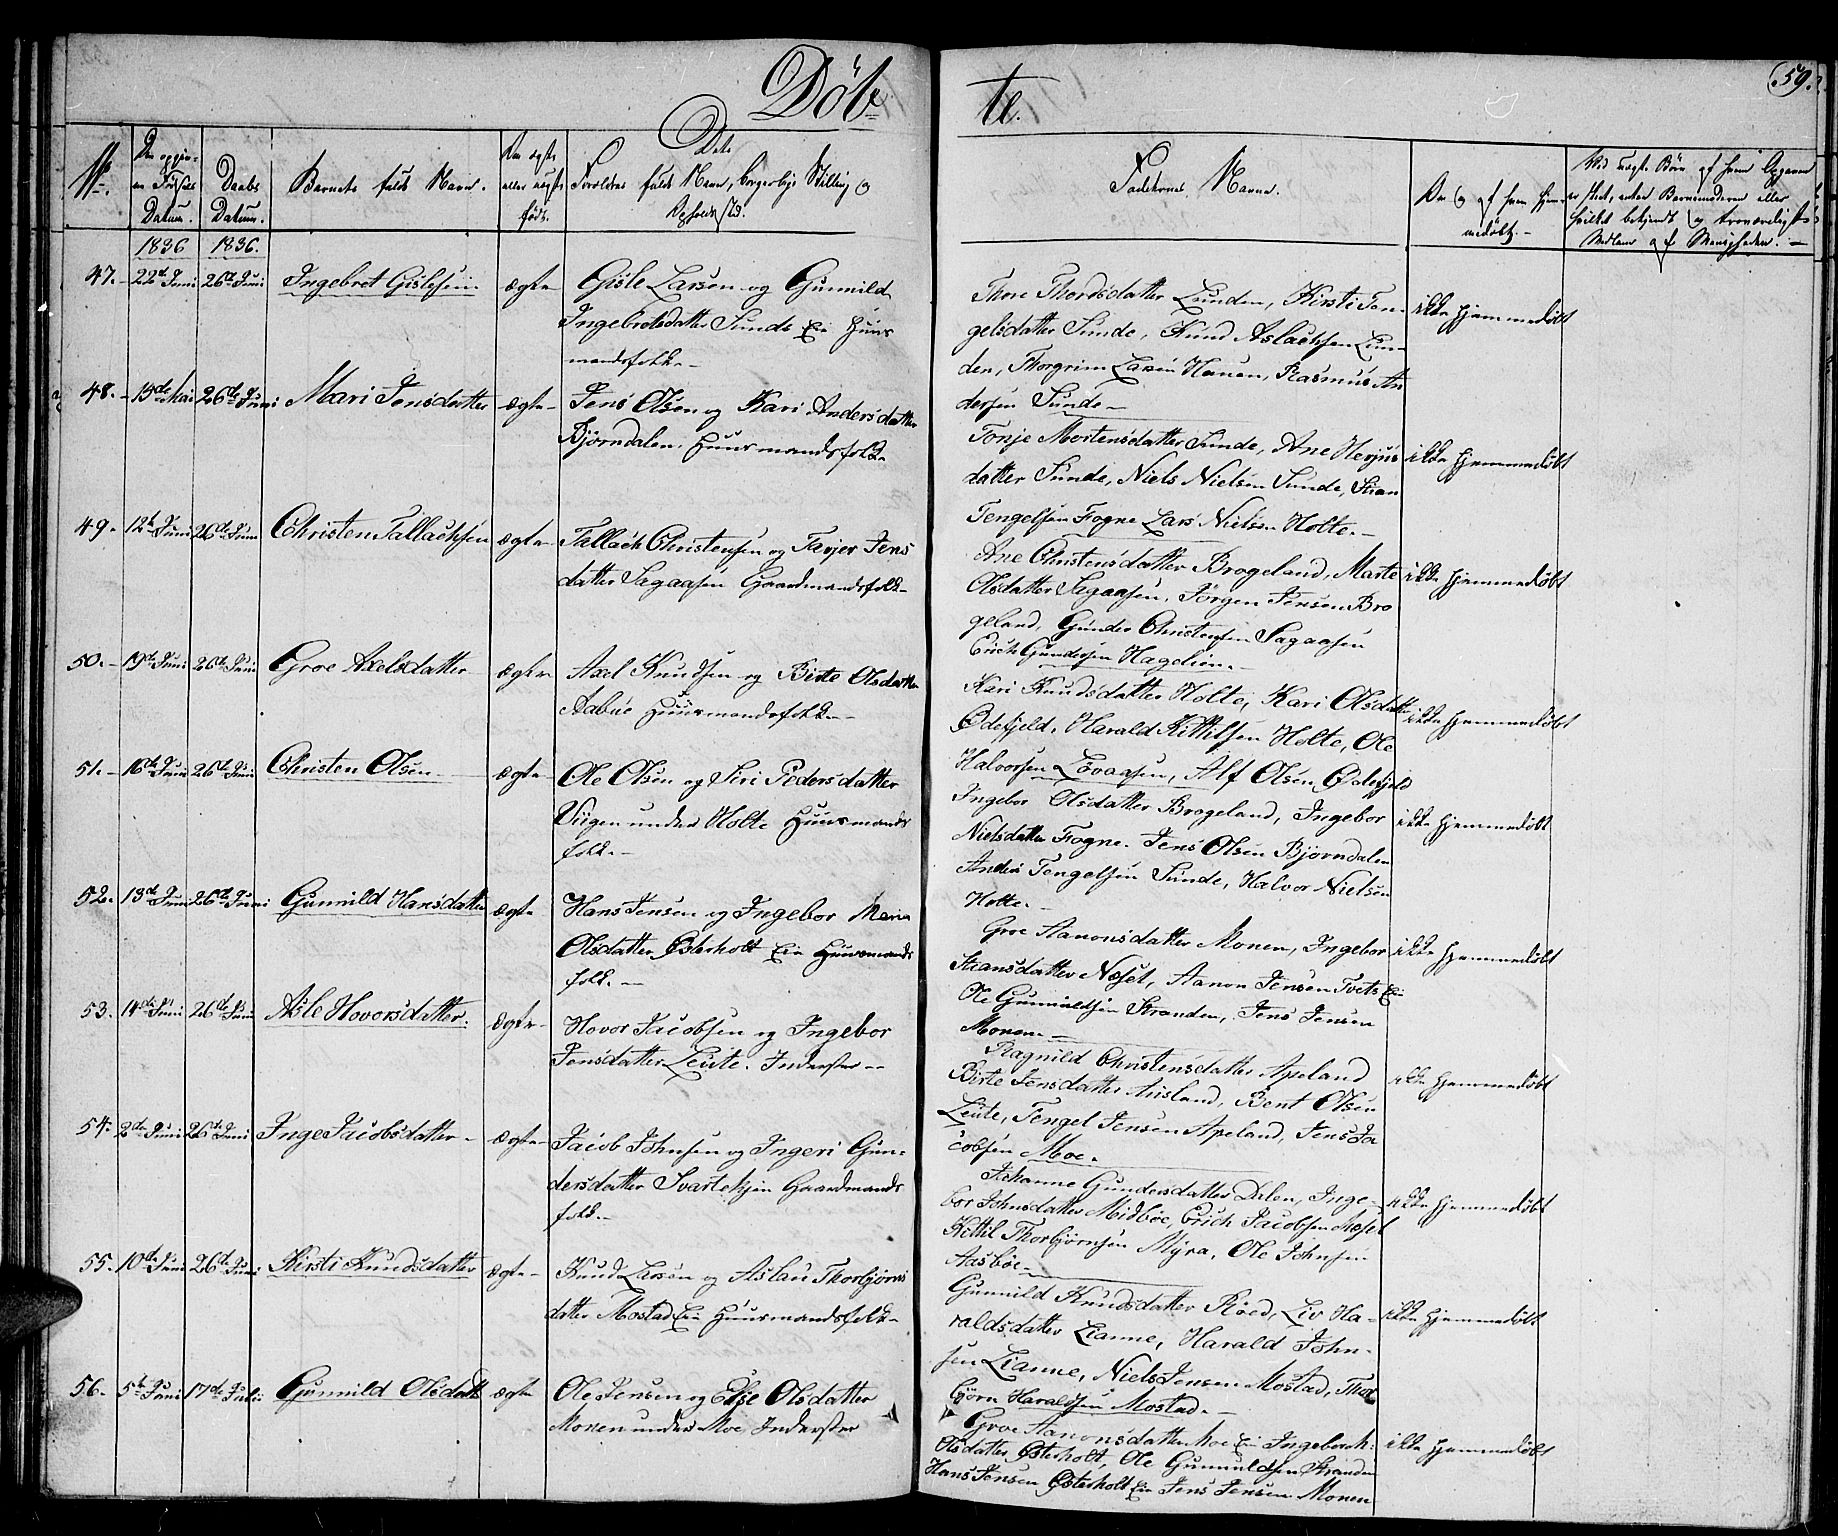 Døb=
te.
59.
No.
Den opgiv=
ne Fødsels
Datum.
Daabs
Datum.
Barnets fulde Navn.
Om ægte
eller uægte
født.
Dets
Forældres fulde Navn, borgerlige Stilling og
Opholdssted.
Faddernes Navne.
Om og af hvem hjem=
medøbt.
Ved uægte Børn af hvem Opgaven
er skeet, enten Barnemoderen eller
hvilket bekjendt og troværdigt
Medlem af Menigheden.
1836 1836.
47. 22de Juni 26de Juni Ingebret Gislesen ægte
Gisle Larsen og Gunnild
Ingebretsdatter Sunde Eie Huus
mandsfolk
Thore Thordsdatter Lunden, Kirsti Ten-
gelsdatter Sunde, Knud Aslachsen Lun-
den, Thorgrim Larsen Hauen, Rasmus An
dersen Sunde
ikke hjemmedøbt
48. 15de Mai 26de Juni Mari Jensdatter ægte
Jens Olsen og Kari Andersdatter
Bjørndalen. Huusmandsfolk
Tonje Mortensdatter Sunde, Ane Herjus
datter Sunde, Niels Nielsen Sunde, Stian
Tengelsen Fogne Lars Nielsen Holte.
ikke hjemmedøbt
49. 12te Juni 26de Juni Christen Tallachsen ægte
Tallach Christensen og Tarjer Jens
datter Sagaasen Gaardmandsfolk
Ane Christensdatter Brogeland, Marte
Olsdatter Sagaasen, Jørgen Jensen Bro
geland, Gunder Christensen Sagaasen
Erich Gundersen Hagelien.
ikke hjemmedøbt
50. 19de Juni 26de Juni Groe Axelsdatter ægte
Axel Knudsen og Birte Olsdatter
Aabue Huusmandsfolk
Kari Knudsdatter Holte, Kari Olsdatter
Ødefjeld, Harald Kittilsen Holte, Ole
Halvorsen Løvaasen, Alf Olsen Ødefjeld
ikke hjemmedøbt
51. 16de Juni 26de Juni Christen Olsen ægte
Ole Olsen og Siri Pedersdatter
Viigen under Holte Huusmands
folk.
Ingebor Olsdatter Brogeland, Ingebor
Nielsdatter Fogne. Jens Olsen Bjørndalen
Anders Tengelsen Sunde, Halvor Nielsen
Holte.
ikke hjemmedøbt
52. 13de Juni 26de Juni Gunnild Hansdatter ægte
Hans Jensen og Ingebor Maria
Olsdatter Østerholt Eie Huusmands
folk.
Groe Aanonsdatter Monen, Ingebor
Staansdatter Næset, Aanon Jensen Tvets Eie
Ole Gunnuldsen Stranden, Jens Jensen
Monen
ikke hjemmedøbt
53. 14de Juni 26de Juni Asle Hovorsdatter. ægte
Hovor Jacobsen og Ingebor
Jensdatter Leite. Inderster
Ragnild Christensdatter Apeland
Birte Jensdatter Ausland, Bent Olsen
Leite, Tengel Jensen Apeland, Jens Ja
cobsen Moe.
ikke hjemmedøbt
54. 2den Juni 26de Juni Inge Jacobsdatter ægte
Jacob Johnsen og Ingeri Gun=
dersdatter Svartekjen Gaardmands
folk.
Johanne Gundersdatter Dalen, Inge-
bor Johnsdatter Midbøe, Erich Jacobsen Næset
Kittil Thorbjørnsen Myra, Ole Johnsen
Aasbøe
ikke hjemmedøbt
55. 10de Juni 26de Juni Kirsti Knudsdatter ægte
Knud Larsen og Aslau Thorbjørns
datter Mostad Eie Huusmandsfolk
Gunnild Knudsdatter Røed, Liv Ha-
raldsdatter Lianne, Harald John-
sen Lianne, Niels Jensen Mostad, Thor
bjørn Haraldsen Mostad.
ikke hjemmedøbt
56. 5te Juni 17de Julii Gunnild Olsdatt ægte
Ole Jensen og Else Olsdatter
Monen under Moe Inderster
Groe Aanonsdatter Moe Eie Ingeborch
Olsdatter Østerholt, Ole Gunnuldsen Stranden
Hans Jensen Østerholt Eie Jens Jensen Monen
ikke hjemmedøbt